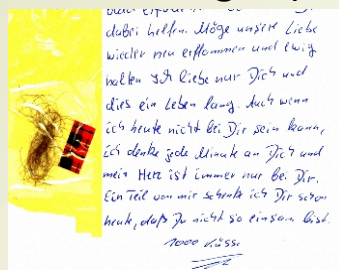 dabei helfen. Möge unsere Liebe
wieder neu entflammen und ewig
halten Ich liebe nur Dich und
dies ein Leben lang. Auch wenn
ich heute nicht bei Dir sein kann,
ich denke jede Minute an Dich und
mein Herz ist immer nur bei Dir.
Ein Teil von mir schenke ich Dir schon
heute, daß Du nicht so einsam bist.
1000 Küsse